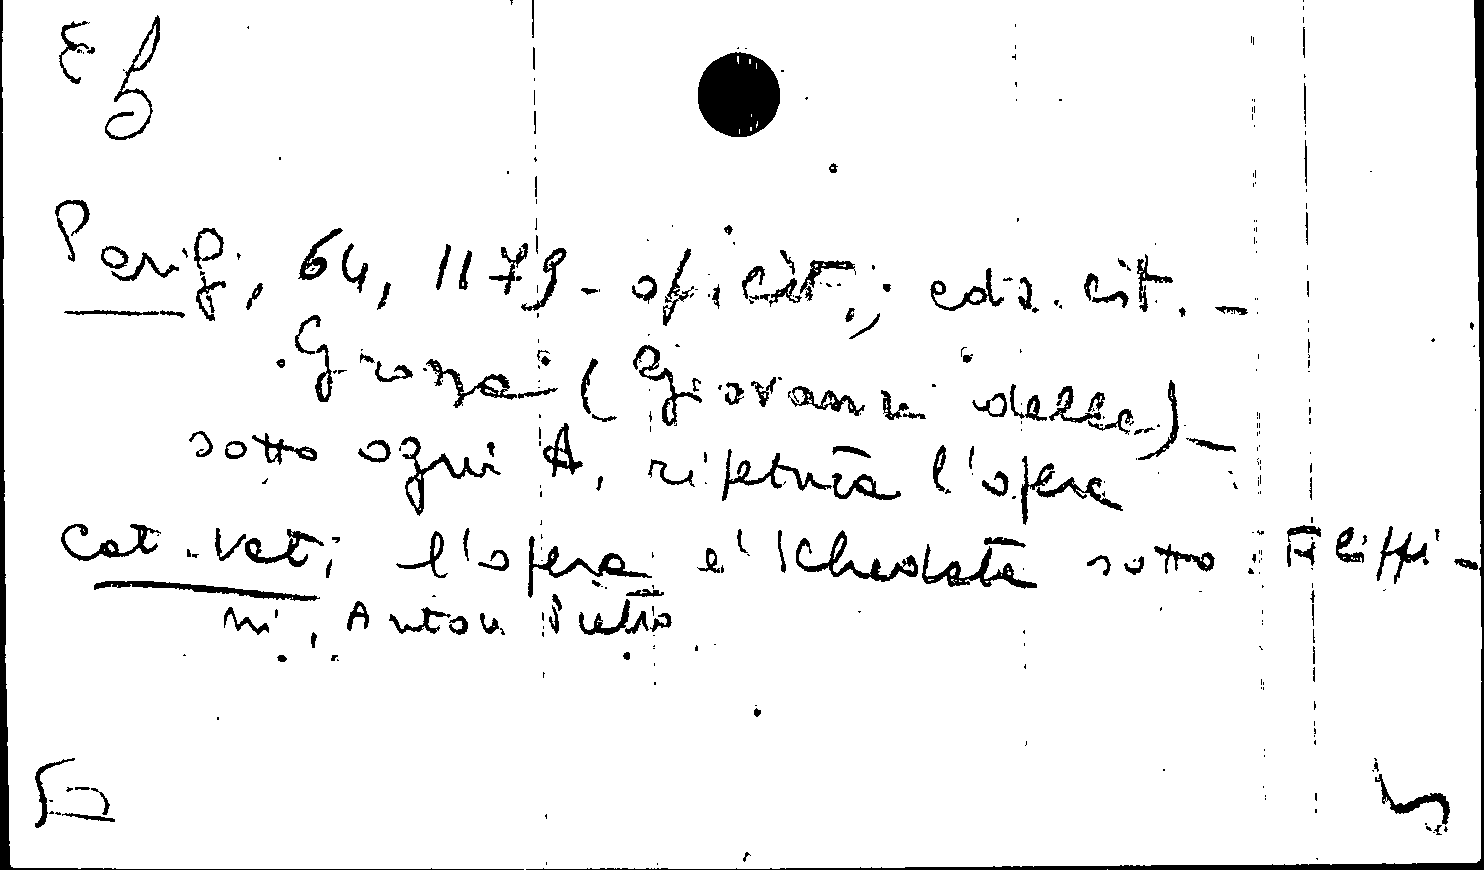 Parigi, 64, 1179 - op. cit.; ediz. cit. -
Grossa (Giovanni della) -
sotto ogni A, ripetuta l'opera
Cat. Vat; l'opera e' schedata sotto: Filippi-
ni, Anton Pietro